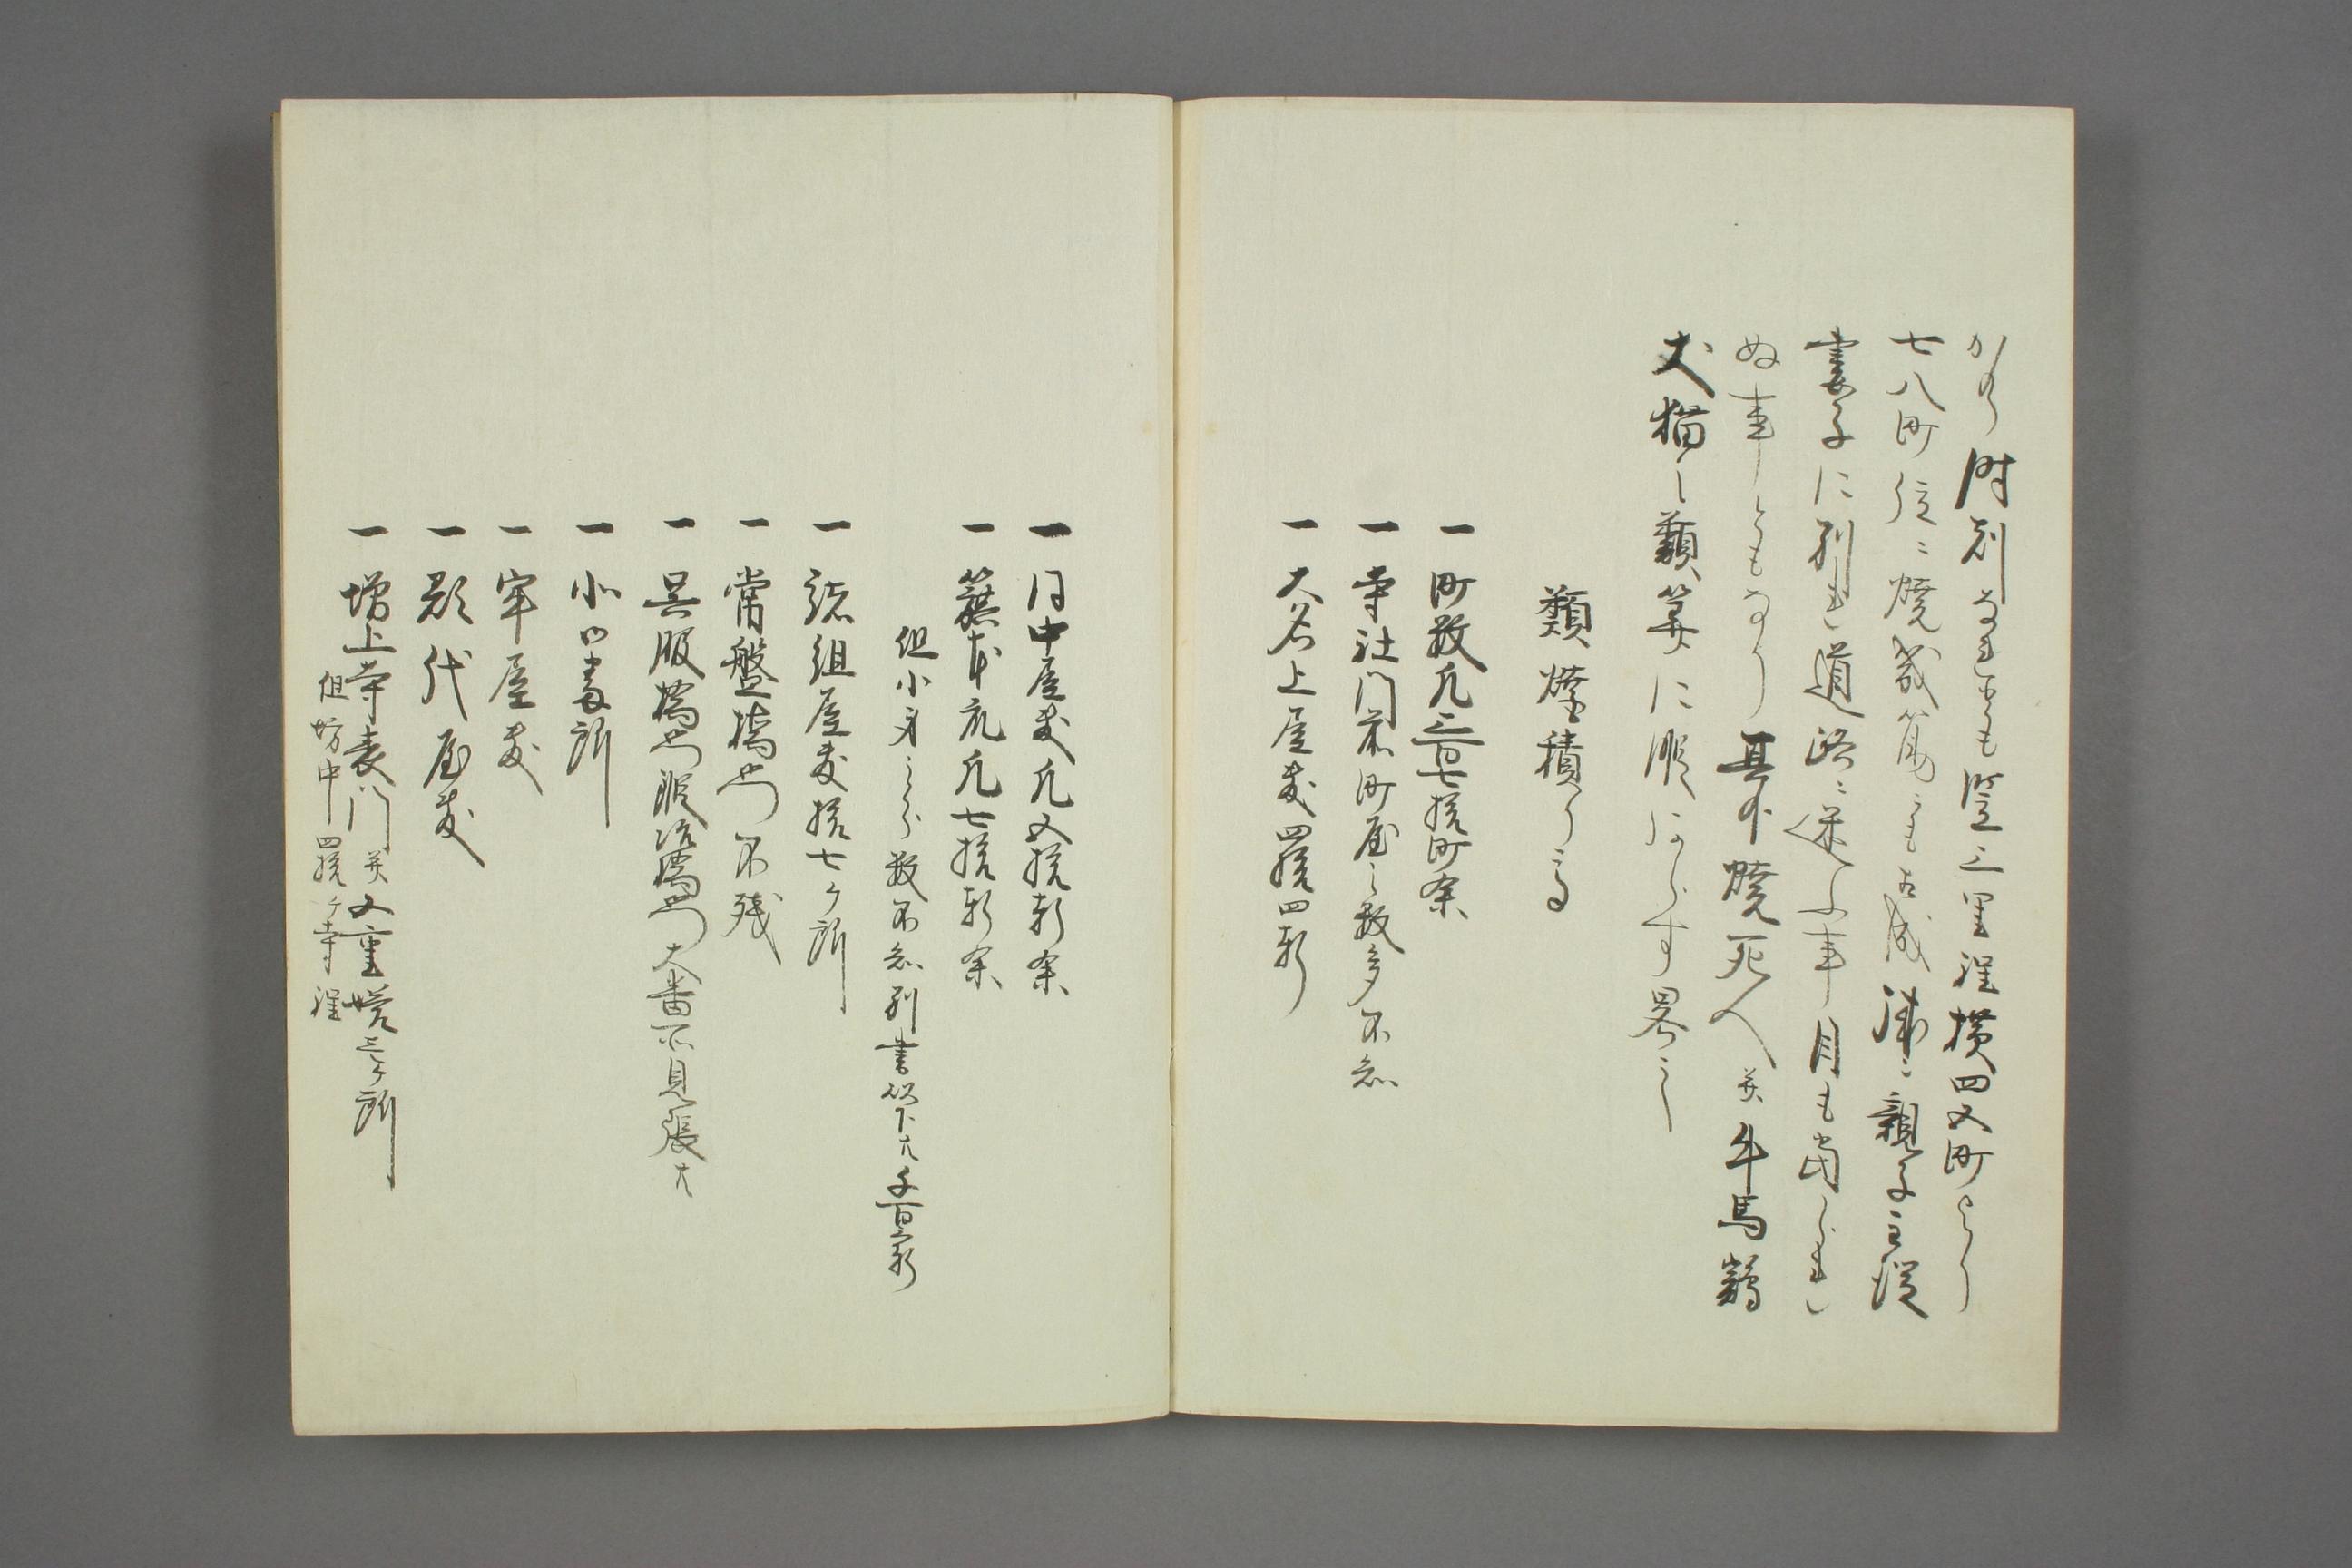 時刻なれとも竪三里程横四五町より
七八町位ニ焼幾筋にも相成候ニ親子主従
妻子に別れ道路ニ迷ふ事目も当られ
ぬ事ともなり其外焼死人并牛馬鶏
犬猫之類筭に限あらす畧之
類焼積り高
一 町数凡三百七拾町余
一 寺社門前町屋之数多不知
一 大名上屋敷四拾四軒
一 同中屋敷凡五拾軒余
一 籏本衆凡七拾軒余
但小身之分数不知別書以下凡千百家
一 諸組屋敷拾七ヶ所
一 常盤橋御門不残
一 呉服橋御門 鍛冶橋御門 大番所見張斗
一 小口番所
一 牢屋敷
一 郡代屋敷
一 増上寺表門并五重塔三ヶ所
但坊中四拾ヶ寺程